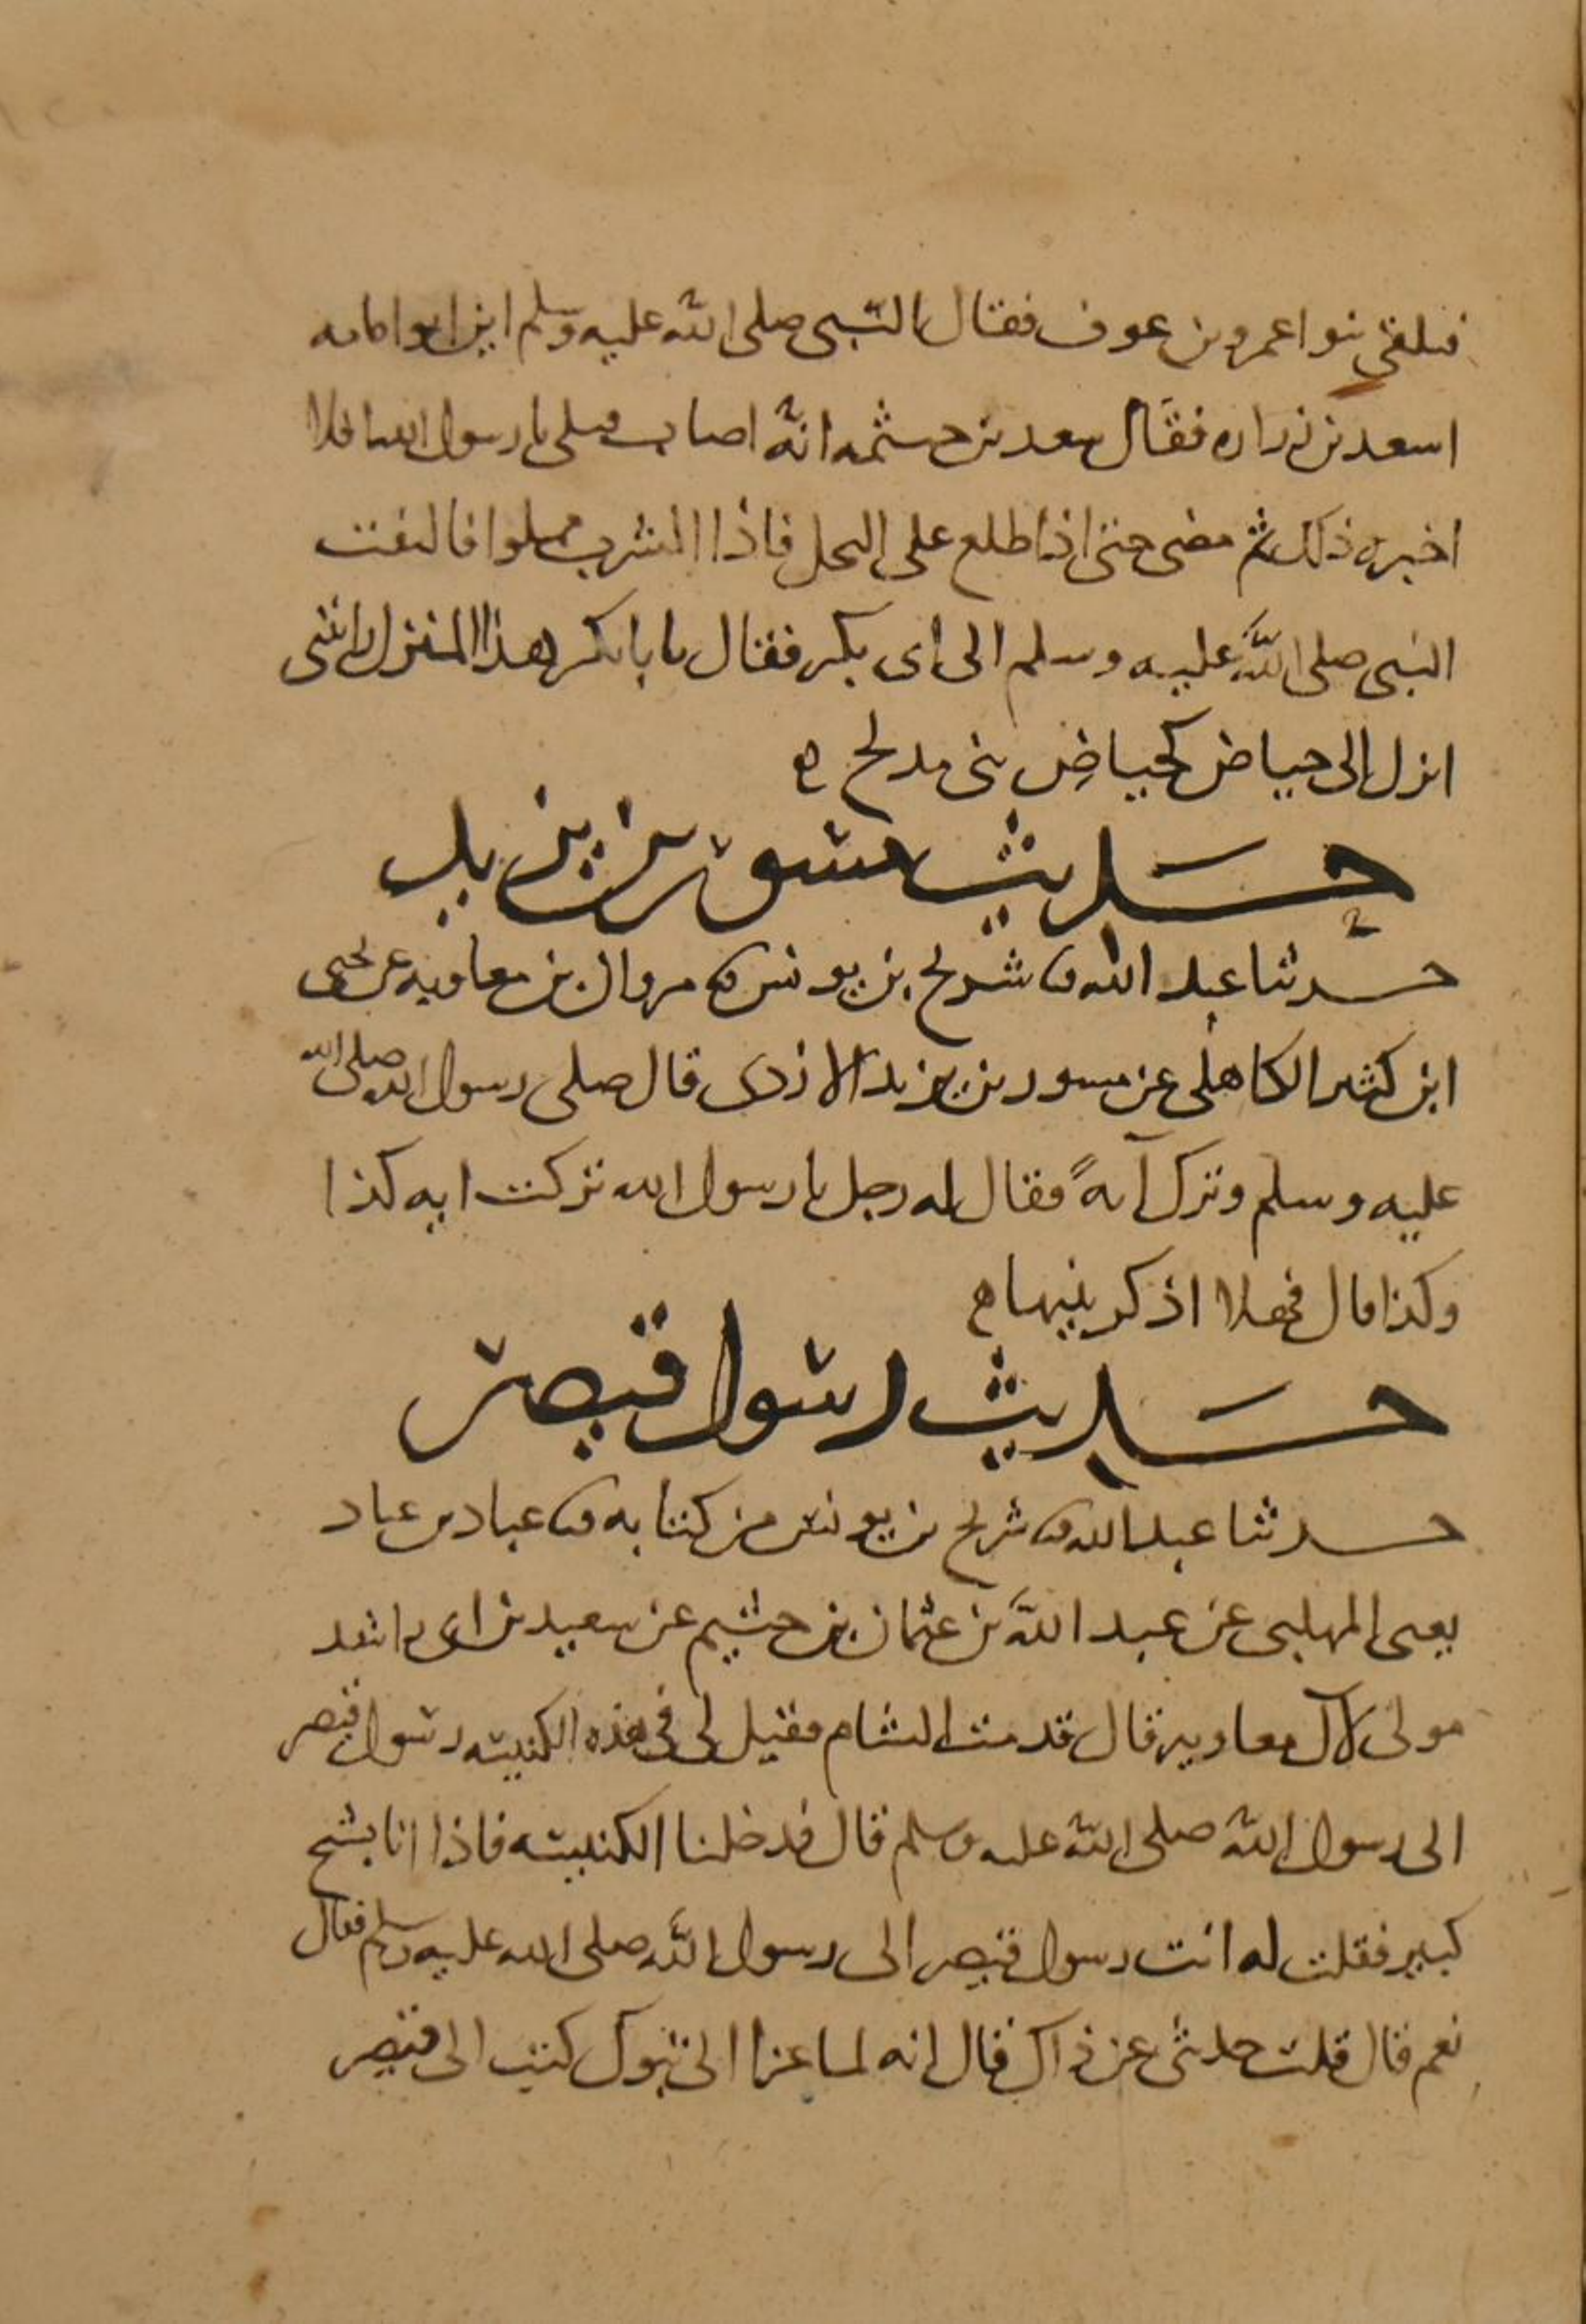 فتلقى بنوا عمرو بن عوف فقال النبي صلى الله عليه وسلم اين ابو امامه
اسعد بن زراره فقال سعد بن خيثمه انه اصاب قبلي يا رسول الله افلا
اخبره ذلك ثم مضى حتى اذا طلع على النخل فاذا الشرب مملوا فالتفت
النبي صلى الله عليه وسلم الى ابي بكر فقال يا با بكر هذا المنزل رايتني
انزل الى حياض كحياض بني مدلج ه
حديث مسور بن يزيد
حدثنا عبد الله ثنا شريح بن يونس ثنا مروان بن معاويه عن يحيى
ابن كثير الكاهلي عن مسور بن يزيد الازدي قال صلى رسول الله صلى الله
عليه وسلم وترك آيةً فقال له رجل يا رسول الله تركت ايه كذا
وكذا قال فهلا اذكرتنيها ه
حديث رسول قيصر
حدثنا عبد الله ثنا شريح بن يونس من كتابه ثنا عباد بن عباد
يعني المهلبي عن عبد الله بن عثمان بن خثيم عن سعيد بن ابي راشد
مولى لآل معاوية قال قدمت الشام فقيل لي في هذه الكنيسه رسول قيصر
الى رسول الله صلى الله عليه وسلم قال فدخلنا الكنيسه فاذا انا بشيخ
كبير فقلت له انت رسول قيصر الى رسول الله صلى الله عليه وسلم فقال
نعم قال قلت حدثني عن ذاك قال انه لما غزا الى تبوك كتب الى قيصر